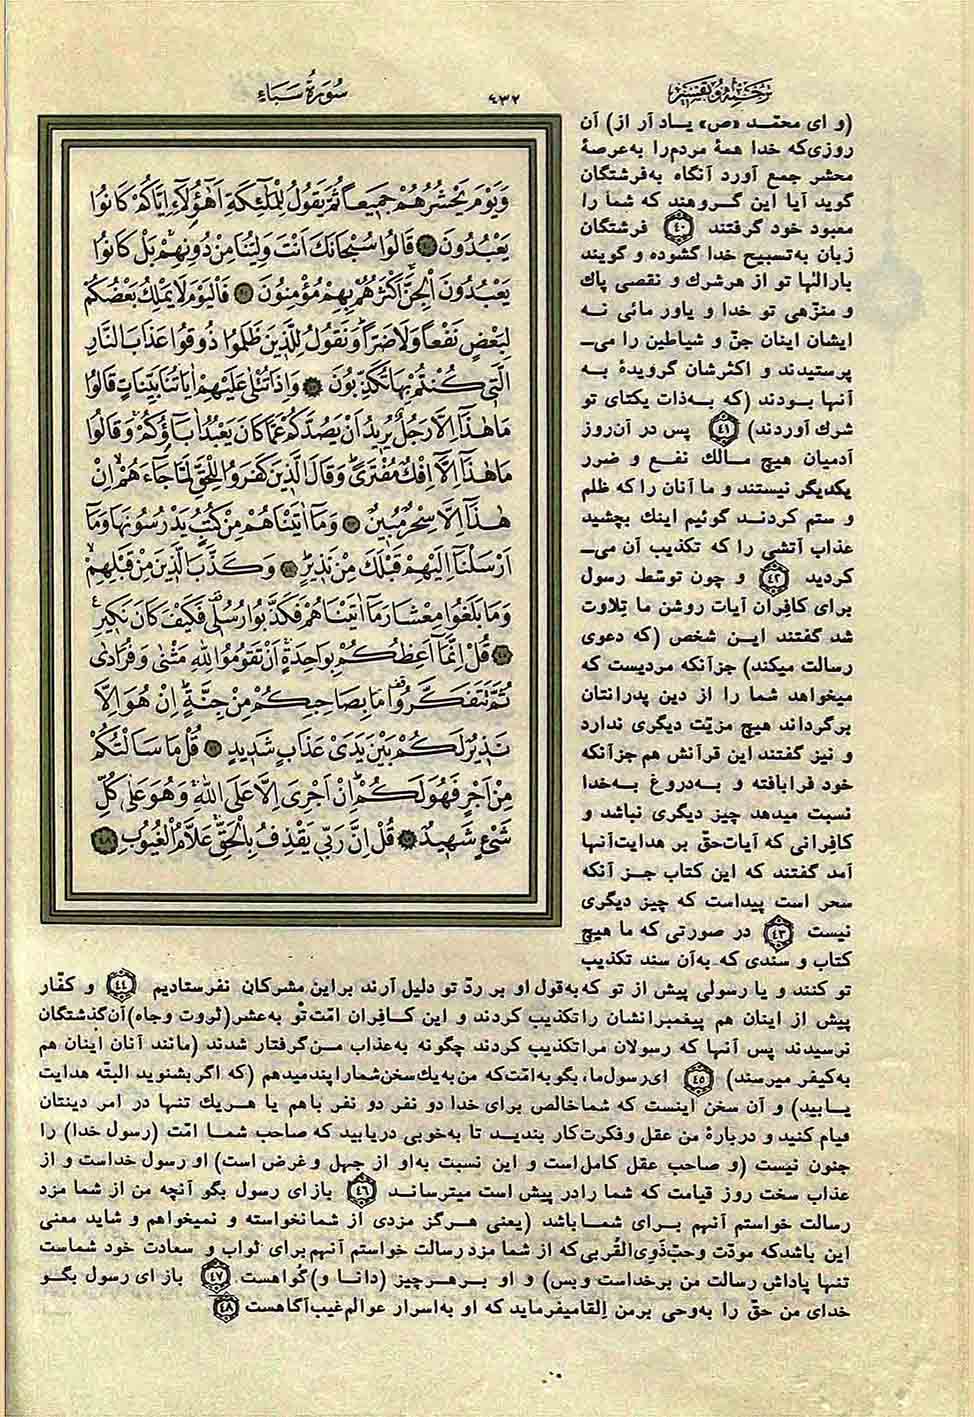 ترجمه و تفسیر
٤٣٢
سُورَةُ سَبَاءِ
وَيَوْمَ يَحْشُرُهُمْ جَمِيعاً ثُمَّ يَقُولُ لِلْمَلٰئِكَةِ اَهٰٓؤُلَاۤءِ اِيَّاكُمْ كَانُوا
يَعْبُدُونَ ٤٠ قَالُوا سُبْحَانَكَ اَنْتَ وَلِيُّنَا مِنْ دُونِهِمْ بَلْ كَانُوا
يَعْبُدُونَ الْجِنَّ اَكْثَرُهُمْ بِهِمْ مُؤْمِنُونَ ٤١ فَالْيَوْمَ لَا يَمْلِكُ بَعْضُكُمْ
لِبَعْضٍ نَفْعاً وَلَا ضَرّاً وَنَقُولُ لِلَّذِينَ ظَلَمُوا ذُوقُوا عَذَابَ النَّارِ
الَّتِي كُنْتُمْ بِهَا تُكَذِّبُونَ ٤٢ وَاِذَا تُتْلٰى عَلَيْهِمْ اٰيَاتُنَا بَيِّنَاتٍ قَالُوا
مَا هٰذَٓا اِلَّا رَجُلٌ يُرِيدُ اَنْ يَصُدَّكُمْ عَمَّا كَانَ يَعْبُدُ اٰبَاۤؤُكُمْ وَقَالُوا
مَا هٰذَٓا اِلَّٓا اِفْكٌ مُفْتَرًى وَقَالَ الَّذِينَ كَفَرُوا لِلْحَقِّ لَمَّا جَاۤءَهُمْ اِنْ
هٰذَٓا اِلَّا سِحْرٌ مُبِينٌ ٤٣ وَمَٓا اٰتَيْنَاهُمْ مِنْ كُتُبٍ يَدْرُسُونَهَا وَمَٓا
اَرْسَلْنَٓا اِلَيْهِمْ قَبْلَكَ مِنْ نَذِيرٍ ٤٤ وَكَذَّبَ الَّذِينَ مِنْ قَبْلِهِمْ
وَمَا بَلَغُوا مِعْشَارَ مَٓا اٰتَيْنَاهُمْ فَكَذَّبُوا رُسُلِي فَكَيْفَ كَانَ نَكِيرِ
٤٥ قُلْ اِنَّمَٓا اَعِظُكُمْ بِوَاحِدَةٍ اَنْ تَقُومُوا لِلّٰهِ مَثْنٰى وَفُرَادٰى
ثُمَّ تَتَفَكَّرُوا مَا بِصَاحِبِكُمْ مِنْ جِنَّةٍ اِنْ هُوَ اِلَّا
نَذِيرٌ لَكُمْ بَيْنَ يَدَيْ عَذَابٍ شَدِيدٍ ٤٦ قُلْ مَا سَاَلْتُكُمْ
مِنْ اَجْرٍ فَهُوَ لَكُمْ اِنْ اَجْرِيَ اِلَّا عَلَى اللّٰهِ وَهُوَ عَلٰى كُلِّ
شَيْءٍ شَهِيدٌ ٤٧ قُلْ اِنَّ رَبِّي يَقْذِفُ بِالْحَقِّ عَلَّامُ الْغُيُوبِ ٤٨
(و ای محمّد «ص» یاد آر از) آن
روزی‌که خدا همهٔ مردم‌را به‌عرصهٔ
محشر جمع آورد آنگاه به‌فرشتگان
گوید آیا این گروهند که شما را
معبود خود گرفتند ٤٠ فرشتگان
زبان به‌تسبیح خدا گشوده و گویند
بارالٰها تو از هر شرك و نقصی پاك
و منزّهی تو خدا و یاور مائی نه
ایشان اینان جنّ و شیاطین را می‌ـ
پرستیدند و اکثرشان گرویدهٔ به
آنها بودند (که به‌ذات یکتای تو
شرك آوردند) ٤١ پس در آن‌روز
آدمیان هیچ مالك نفع و ضرر
یکدیگر نیستند و ما آنان را که ظلم
و ستم کردند گوئیم اینك بچشید
عذاب آتشی را که تکذیب آن می‌ـ
کردید ٤٢ و چون توسّط رسول
برای کافِران آیات روشن ما تِلاوت
شد گفتند این شخص (که دعوی
رسالت میکند) جزآنکه مردیست که
میخواهد شما را از دین پدرانتان
برگرداند هیچ مزیّت دیگری ندارد
و نیز گفتند این قرآنش هم جزآنکه
خود فرابافته و به‌دروغ به‌خدا
نسبت میدهد چیز دیگری نباشد و
کافِرانی که آیات‌حقّ بر هدایت‌آنها
آمد گفتند که این کتاب جز آنکه
سحر است پیداست که چیز دیگری
نیست ٤٣ در صورتی که ما هیچ
کتاب و سندی که به‌آن سند تکذیب
تو کنند و یا رسولی پیش از تو که‌به‌قول او بر ردّ تو دلیل آرند براین مشرکان نفرستادیم ٤٤ و کفّار
پیش از اینان هم پیغمبرانشان را تکذیب کردند و این کافِران امّت تو به‌عشر (ثروت وجاه) آن‌گذشتگان
نرسیدند پس آنها که رسولان مرا تکذیب کردند چگونه به‌عذاب من گرفتار شدند (مانند آنان اینان هم
به‌کیفر میرسند) ٤٥ ای‌رسول‌ما، بگو به‌امّت‌که من به‌یك‌سخن‌شمارا پند میدهم (که اگر بشنوید البتّه هدایت
یابید) و آن سخن اینست که شما خالص برای خدا دو نفر دو نفر باهم یا هریك تنها در امر دینتان
قیام کنید و دربارهٔ من عقل وفکرت‌کار بندید تا به‌خوبی دریابید که صاحب شما امّت (رسول خدا) را
جنون نیست (و صاحب عقل کامل‌است و این نسبت به‌او از جهل وغرض است) او رسول خداست و از
عذاب سخت روز قیامت که شما را در پیش است میترساند ٤٦ بازای رسول بگو آنچه من از شما مزد
رسالت خواستم آنهم برای شما باشد (یعنی هرگز مزدی از شما نخواسته و نمیخواهم و شاید معنی
این باشدکه مودّت وحبّ ذَوِی‌القُربی‌که از شما مزد رسالت خواستم آنهم برای ثواب و سعادت خود شماست
تنها پاداش رسالت من برخداست وبس) و او برهرچیز (دانا و) گواهست ٤٧ باز ای رسول بگو
خدای من حقّ را به‌وحی برمن اِلقا میفرماید که او به‌اسرار عوالم غیب‌آگاهست ٤٨